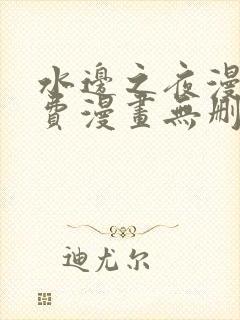 水邊之夜漫
費漫畫無刪
迪尤尔